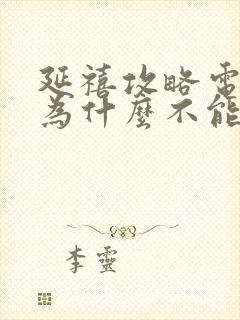 延禧攻略電
為什麼不能
李靈